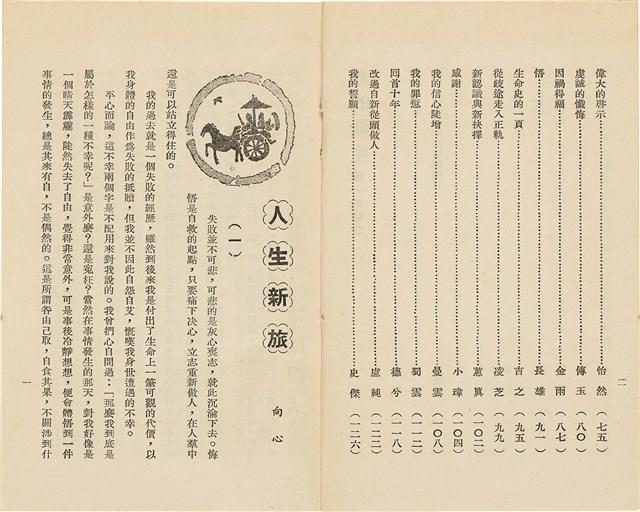 偉大的啓示 怡然（七五）
虔誠的懺悔 傅玉（八〇）
因禍得福 金雨（八七）
悟 長雄（九一）
生命史的一頁 吉之（九五）
從歧途走入正軌 凌芝（九九）
新認識與新抉擇 蕙眞（一〇二）
感謝 小瑋（一〇四）
我的信心陡增 曼雲（一〇八）
我的罪愆 蜀雲（一一二）
回首十年 德兮（一一八）
改過自新從頭做人 盧純（一二二）
我的誓願 史傑（一二六）
二
人生新旅
向心
（一）
失敗並不可悲，可悲的是灰心喪志，就此沉淪下去。悔
悟是自救的起點，只要痛下决心，立志重新做人，在人羣中
還是可以站立得住的。
我的過去就是一個失敗的經歷，雖然到後來我是付出了生命上一筆可觀的代價，以
我身體的自由作爲失敗的抵贖，但我並不因此自怨自艾，慨嘆我身世遭遇的不幸。
平心而論，這不幸兩個字是不配用來對我說的。我曾捫心自問過：「那麼我到底是
屬於怎樣的一種不幸呢？」是意外麼？還是寃枉？當然在事情發生的那天，對我好像是
一個晴天霹靂，陡然失去了自由，覺得非常意外，可是事後冷靜想想，便會體悟到一件
事情的發生，總是其來有自，不是偶然的。這是所謂咎由己取，自食其果，不關涉到什
一